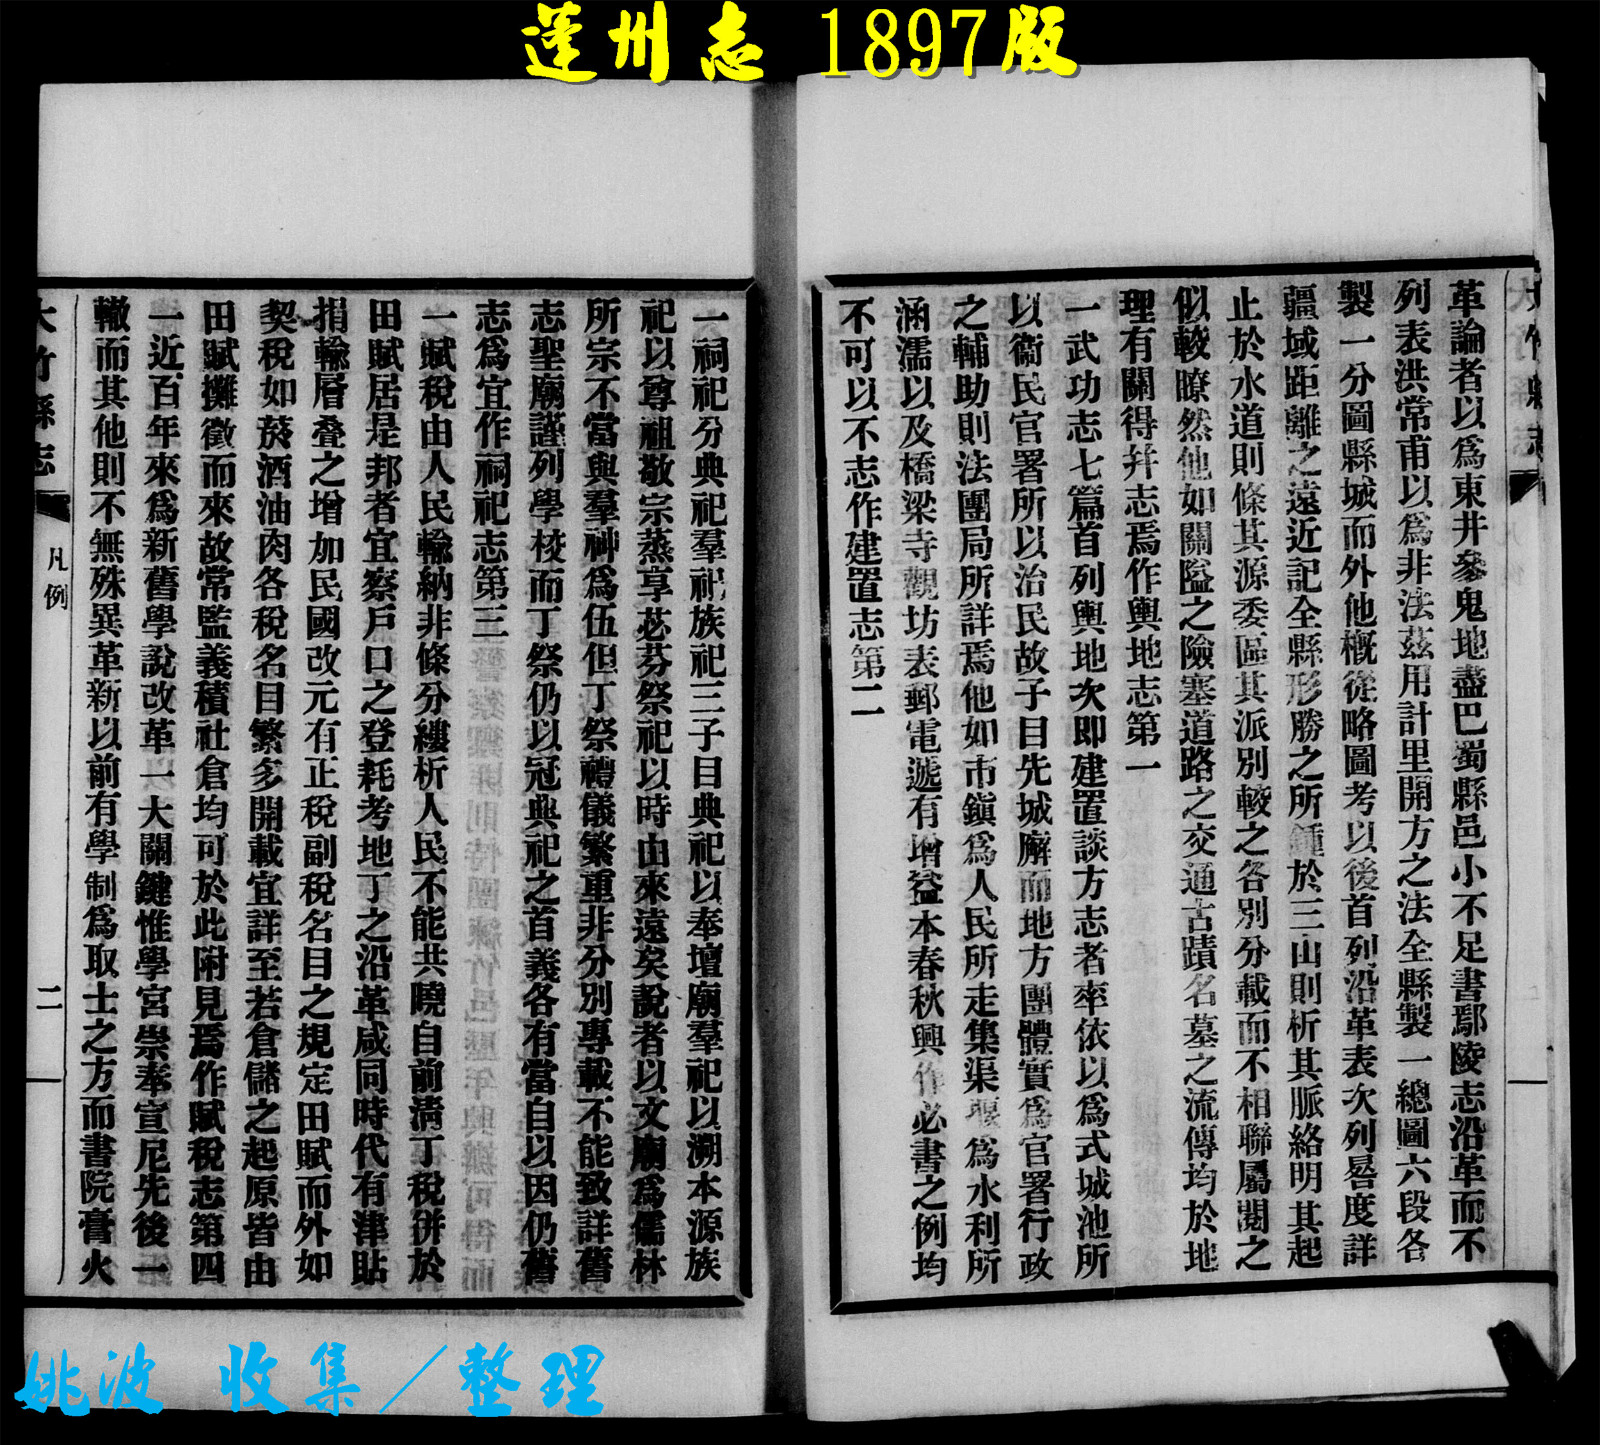 蓬州志 1897版
革論者以爲東井參鬼地盡巴蜀縣邑小不足書鄢陵志沿革而不
列表洪常甫以爲非法茲用計里開方之法全縣製一總圖六段各
製一分圖縣城而外他槪從略圖考以後首列沿革表次列晷度詳
疆域距離之遠近記全縣形勝之所鍾於三山則析其脈絡明其起
止於水道則條其源委區其派別較之各別分載而不相聯屬閱之
似較瞭然他如關隘之險塞道路之交通古蹟名墓之流傳均於地
理有關得幷志焉作輿地志第一
一武功志七篇首列輿地次即建置談方志者率依以爲式城池所
以衞民官署所以治民故子目先城廨而地方團體實爲官署行政
之輔助則法團局所詳焉他如市鎭爲人民所走集渠堰爲水利所
涵濡以及橋梁寺觀坊表郵電遞有增益本春秋興作必書之例均
不可以不志作建置志第二
一祠祀分典祀羣祀族祀三子目典祀以奉壇廟羣祀以溯本源族
祀以尊祖敬宗蒸享苾芬祭祀以時由來遠矣說者以文廟爲儒林
所宗不當與羣神爲伍但丁祭禮儀繁重非分別專載不能致詳舊
志聖廟謹列學校而丁祭仍以冠典祀之首義各有當自以因仍舊
志爲宜作祠祀志第三
一賦稅由人民輸納非條分縷析人民不能共曉自前淸丁稅併於
田賦居是邦者宜察戶口之登耗考地丁之沿革咸同時代有津貼
捐輸層叠之增加民國改元有正稅副稅名目之規定田賦而外如
契稅如菸酒油肉各稅名目繁多開載宜詳至若倉儲之起原皆由
田賦攤徵而來故常監義積社倉均可於此附見焉作賦稅志第四
一近百年來爲新舊學說改革一大關鍵惟學宮崇奉宣尼先後一
轍而其他則不無殊異革新以前有學制爲取士之方而書院膏火
大竹縣志 凡例 二
姚波 收集/整理